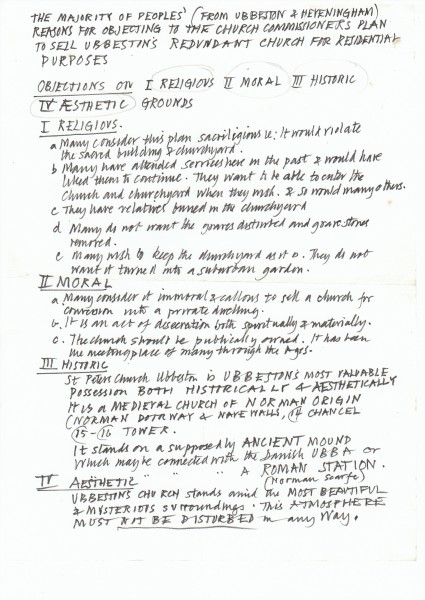 THE MAJORITY OF PEOPLES' (FROM UBBESTON & HEVENINGHAM)
REASONS FOR OBJECTING TO THE CHURCH COMMISSIONERS PLAN
TO SELL UBBESTON'S REDUNDANT CHURCH FOR RESIDENTIAL
PURPOSES
OBJECTIONS ON I RELIGIOUS II MORAL III HISTORIC
IV ÆSTHETIC GROUNDS
I RELIGIOUS.
a Many consider this plan sacriligious ie: It would violate
the sacred building & churchyard.
b Many have attended services here in the past & would have
liked them to continue. They want to be able to enter the
Church and churchyard when they wish. & so would many others.
c They have relatives buried in the churchyard
d Many do not want the graves disturbed and grave stones
removed.
e Many wish to keep the churchyard as it is. They do not
want it turned into a suburban garden.
II MORAL
a. Many consider it immoral & callous to sell a church for
conversion into a private dwelling.
b. It is an act of desecration both spiritually & materially.
c. The church should be publically owned. It has been
the meeting place of many through the Ages.
III HISTORIC
St Peters Church Ubbeston is UBBESTON'S MOST VALUABLE
POSSESSION BOTH HISTORICALLY & AESTHETICALLY
It is a MEDIEVAL CHURCH OF NORMAN ORIGIN
(NORMAN DOORWAY & NAVE WALLS, 14 CHANCEL
15-16 TOWER.
It stands on a supposedly ANCIENT MOUND
Which may be connected with the Danish UBBA or
" " " A ROMAN STATION.
(Norman Scarfe)
IV AESTHETIC
UBBESTON'S CHURCH stands amid the MOST BEAUTIFUL
& MYSTERIOUS surroundings. This ATMOSPHERE
MUST NOT BE DISTURBED in any way.